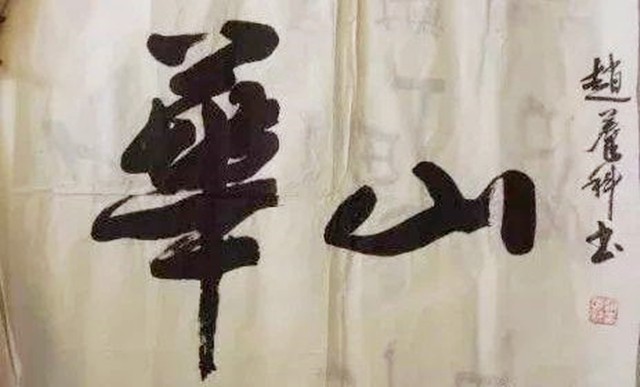 華山
趙養科书